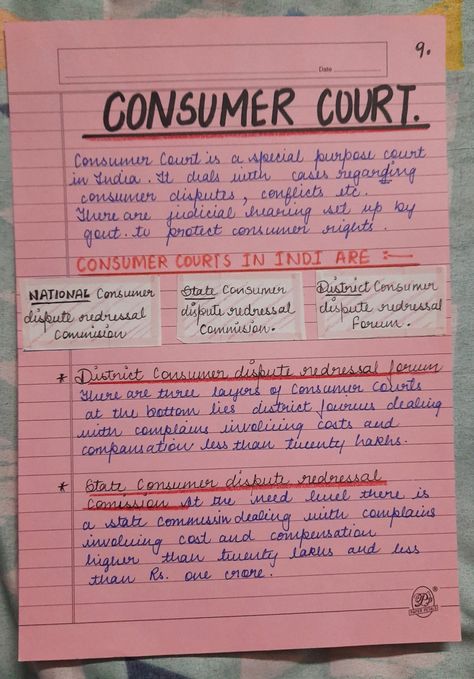 9.
Date
CONSUMER COURT.
Consumer Court is a special purpose court
in India. It deals with cases regarding
consumer disputes, conflicts etc.
There are judicial hearing set up by
govt. to protect consumer rights.
CONSUMER COURTS IN INDI ARE :—
NATIONAL Consumer
dispute redressal
Commision
State Consumer
dispute redressal
Commision.
District Consumer
dispute redressal
Forum.
* District Consumer dispute redressal forum
There are three layers of Consumer Courts
at the bottom lies district fourums dealing
with complains involving costs and
compansation less than twenty lakhs.
* State Consumer dispute redressal
Comission At the need level there is
a state commissin dealing with complains
involving cost and compensation
higher than twenty lakhs and less
than Rs. one crore.
PAPER PETALS